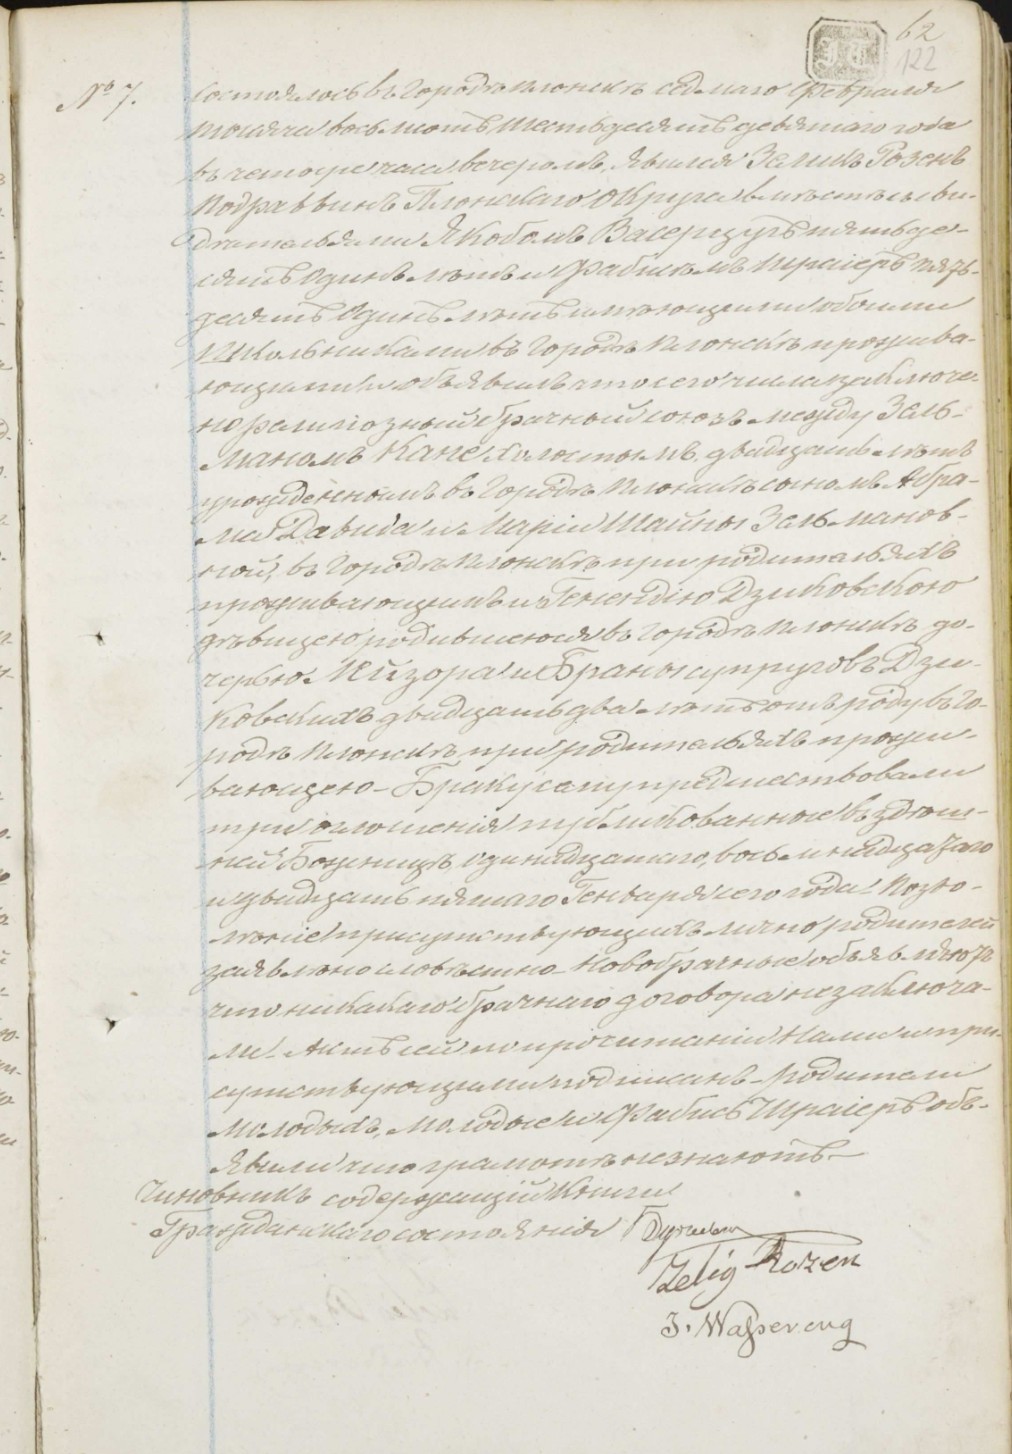 62
122
№ 7.
Состоялось въ Городѣ Плонскѣ седмаго Февраля
тысяча восьмсотъ шестьдесятъ девятаго года
въ четыре часа вечеромъ, Явился Зеликъ Розенъ
Подраввинъ Плонскаго Округа вмѣстѣ съ сви-
дѣтельями Якобомъ Васерцугъ пятьде-
сятъ одинъ лѣтъ и Фабишомъ Шраіеръ пядь-
десятъ Одинъ лѣтъ имѣющими обоими
Школьниками въ Городѣ Плонскѣ прожива-
ющими и объявилъ что сего числа заключе-
но религіозный брачный союзъ между Зель-
маномъ Кане холостымъ, двадцать лѣтъ
урожденнымъ въ Городѣ Плонскѣ сыномъ Абра-
ма Давида и Маріи Шайны Зельманов-
ной, въ Городѣ Плонскѣ при родительяхъ
проживающимъ и Генендію Дзиковскою
дѣвицею родившеюся въ Городѣ Плонскѣ до-
черью Мейзора и Браны супруговъ Дзи-
ковскихъ двадцать два лѣтъ отъ роду въ Го-
родѣ Плонскѣ при родительяхъ прожи-
вающею - Браку сему предшествовали
три оглошенія публикованные въ здѣш-
ней Божницѣ одинадцатаго, восьмнадцатаго
и двадцать пятаго Генваря сего года. Позво-
лѣніе присутствующихъ лично родителей
заявлѣно словѣстно - Новобрачные объявляютъ
что никакаго брачнаго договора не заключа-
ли - Актъ сей по прочитаніи Нами и при-
сутствующими подписанъ - родители
молодыхъ, молодые и Фабишъ Шраіеръ объ-
явили что грамотѣ не знаютъ -
Чиновникъ содержащій Книги
Гражданскаго состоянія
Zelig Rozen
J. Wasserzug